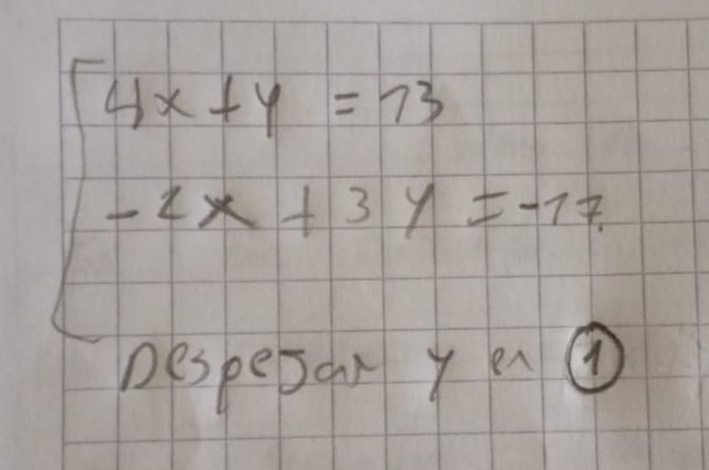 4x + y = 13
-2x + 3y = -17
Despejar y en ①